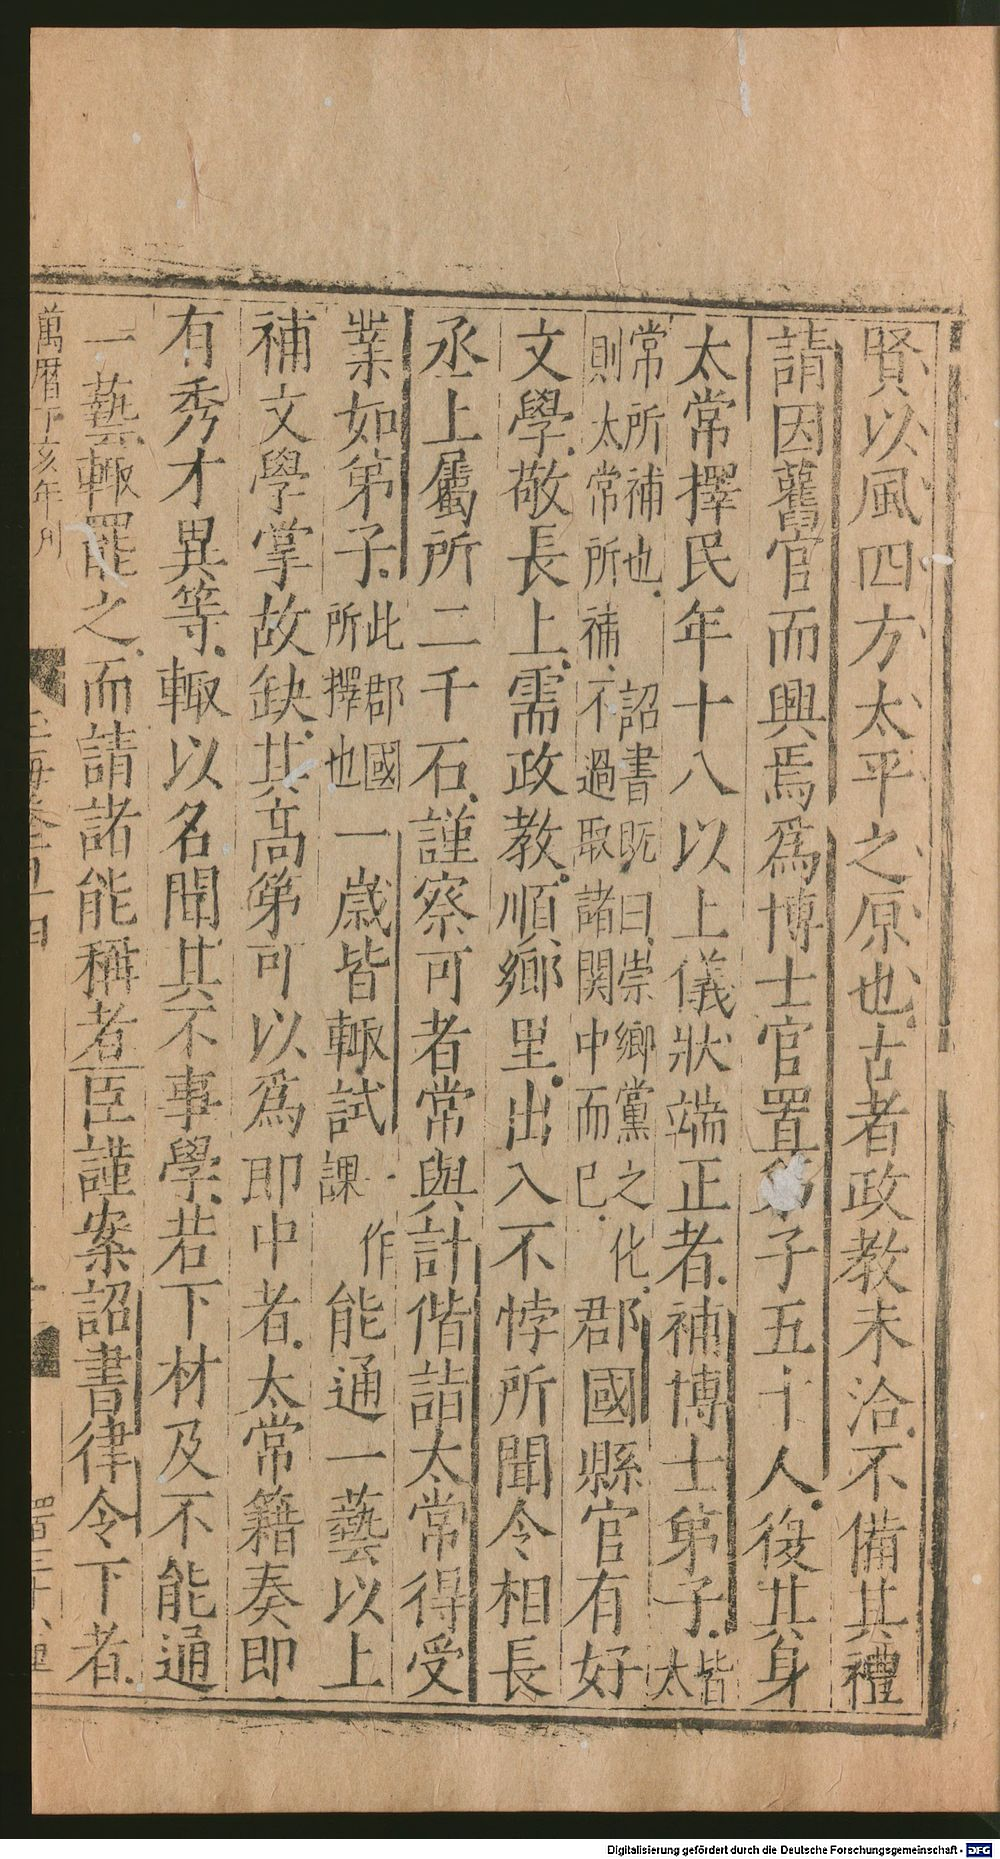 賢以風四方太平之原也古者政教未洽不備其禮
請因舊官而興焉爲博士官置弟子五十人復其身
太常擇民年十八以上儀狀端正者補博士弟子皆太
常所補也詔書既曰崇鄉黨之化
則太常所補不過取諸関中而已郡國縣官有好
文學敬長上肅政教順鄉里出入不悖所聞令相長
丞上屬所二千石謹察可者常與計偕詣太常得受
業如弟子此郡國所擇也一歳皆輙試一作課能通一藝以上
補文學掌故缺其高第可以爲郎中者太常籍奏即
有秀才異等輙以名聞其不事學若下材及不能通
一藝輙罷之而請諸能稱者臣謹案詔書律令下者
萬暦丁亥年刋
Digitalisierung gefördert durch die Deutsche Forschungsgemeinschaft - DFG